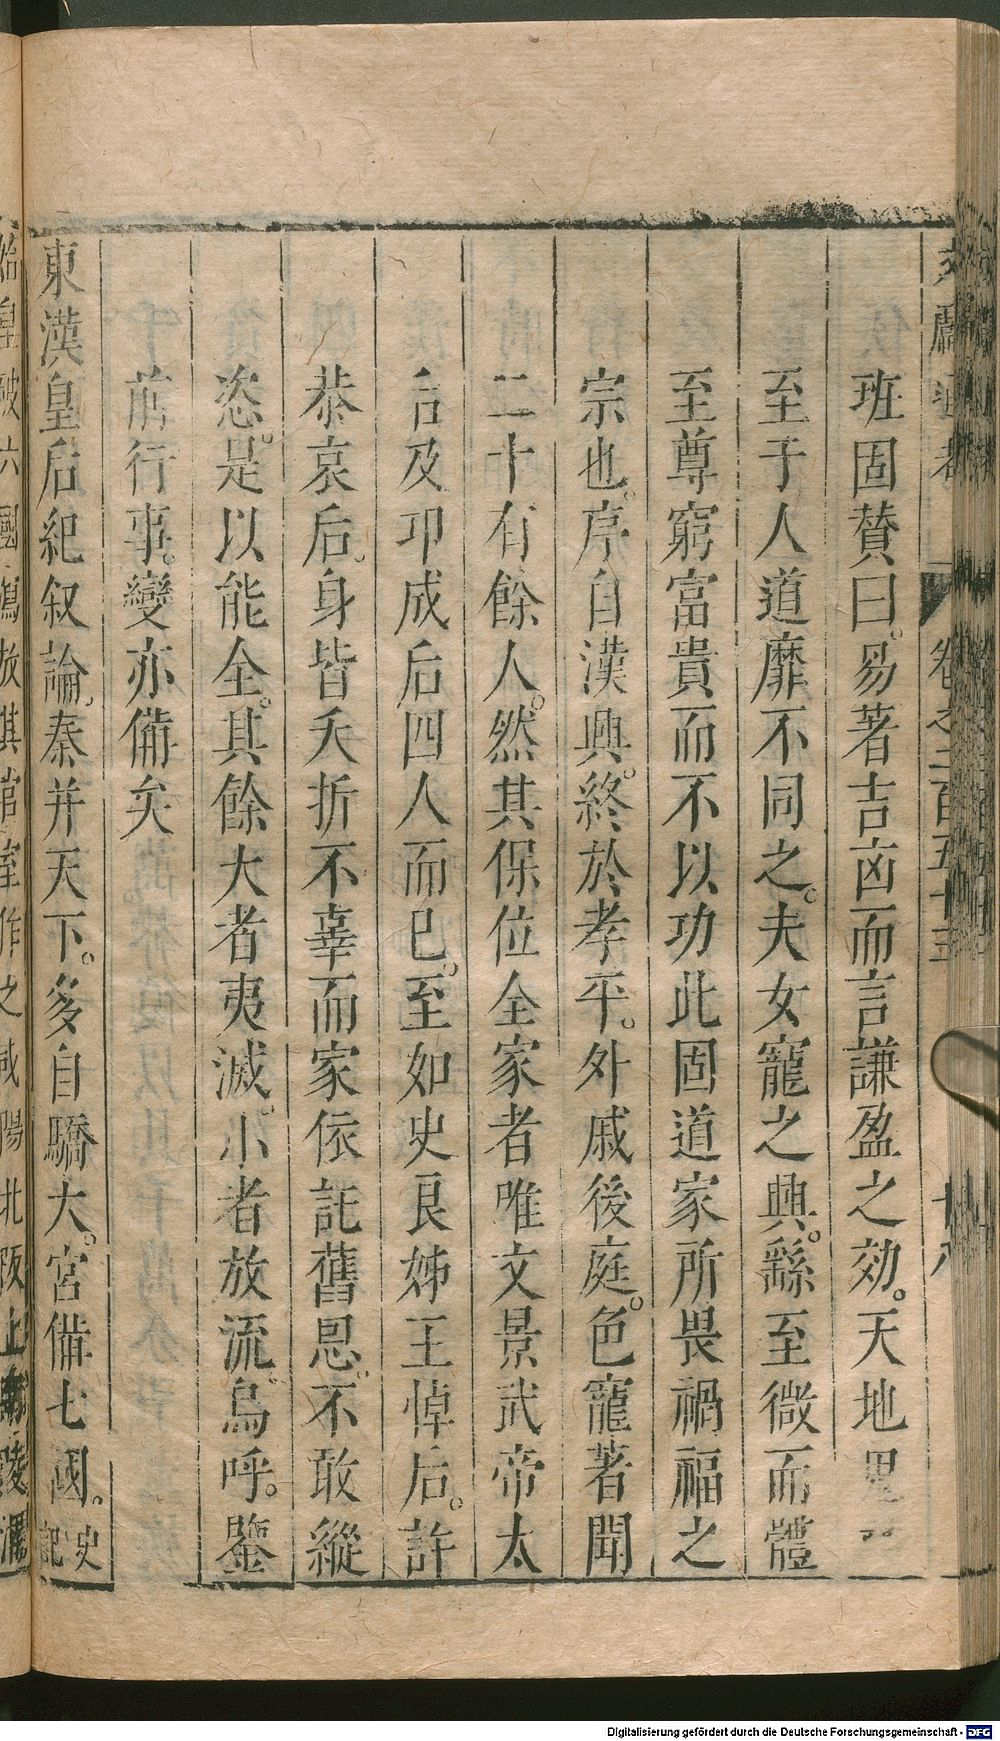 文獻通考 卷之二百五十三 十八
班固贊曰易著吉凶而言謙盈之効天地鬼
至于人道靡不同之夫女寵之興繇至微而體
至尊窮富貴而不以功此固道家所畏禍福之
宗也序自漢興終於孝平外戚後庭色寵著聞
二十有餘人然其保位全家者唯文景武帝太
后及邛成后四人而已至如史良娣王悼后許
恭哀后身皆夭折不辜而家依託舊恩不敢縱
恣是以能全其餘大者夷滅小者放流烏呼鑒
前行事變亦備矣
東漢皇后紀叙論秦并天下多自驕大宮備七國史記
始皇破六國寫放其宮室作之咸陽北阪上南
Digitalisierung gefördert durch die Deutsche Forschungsgemeinschaft - DFG